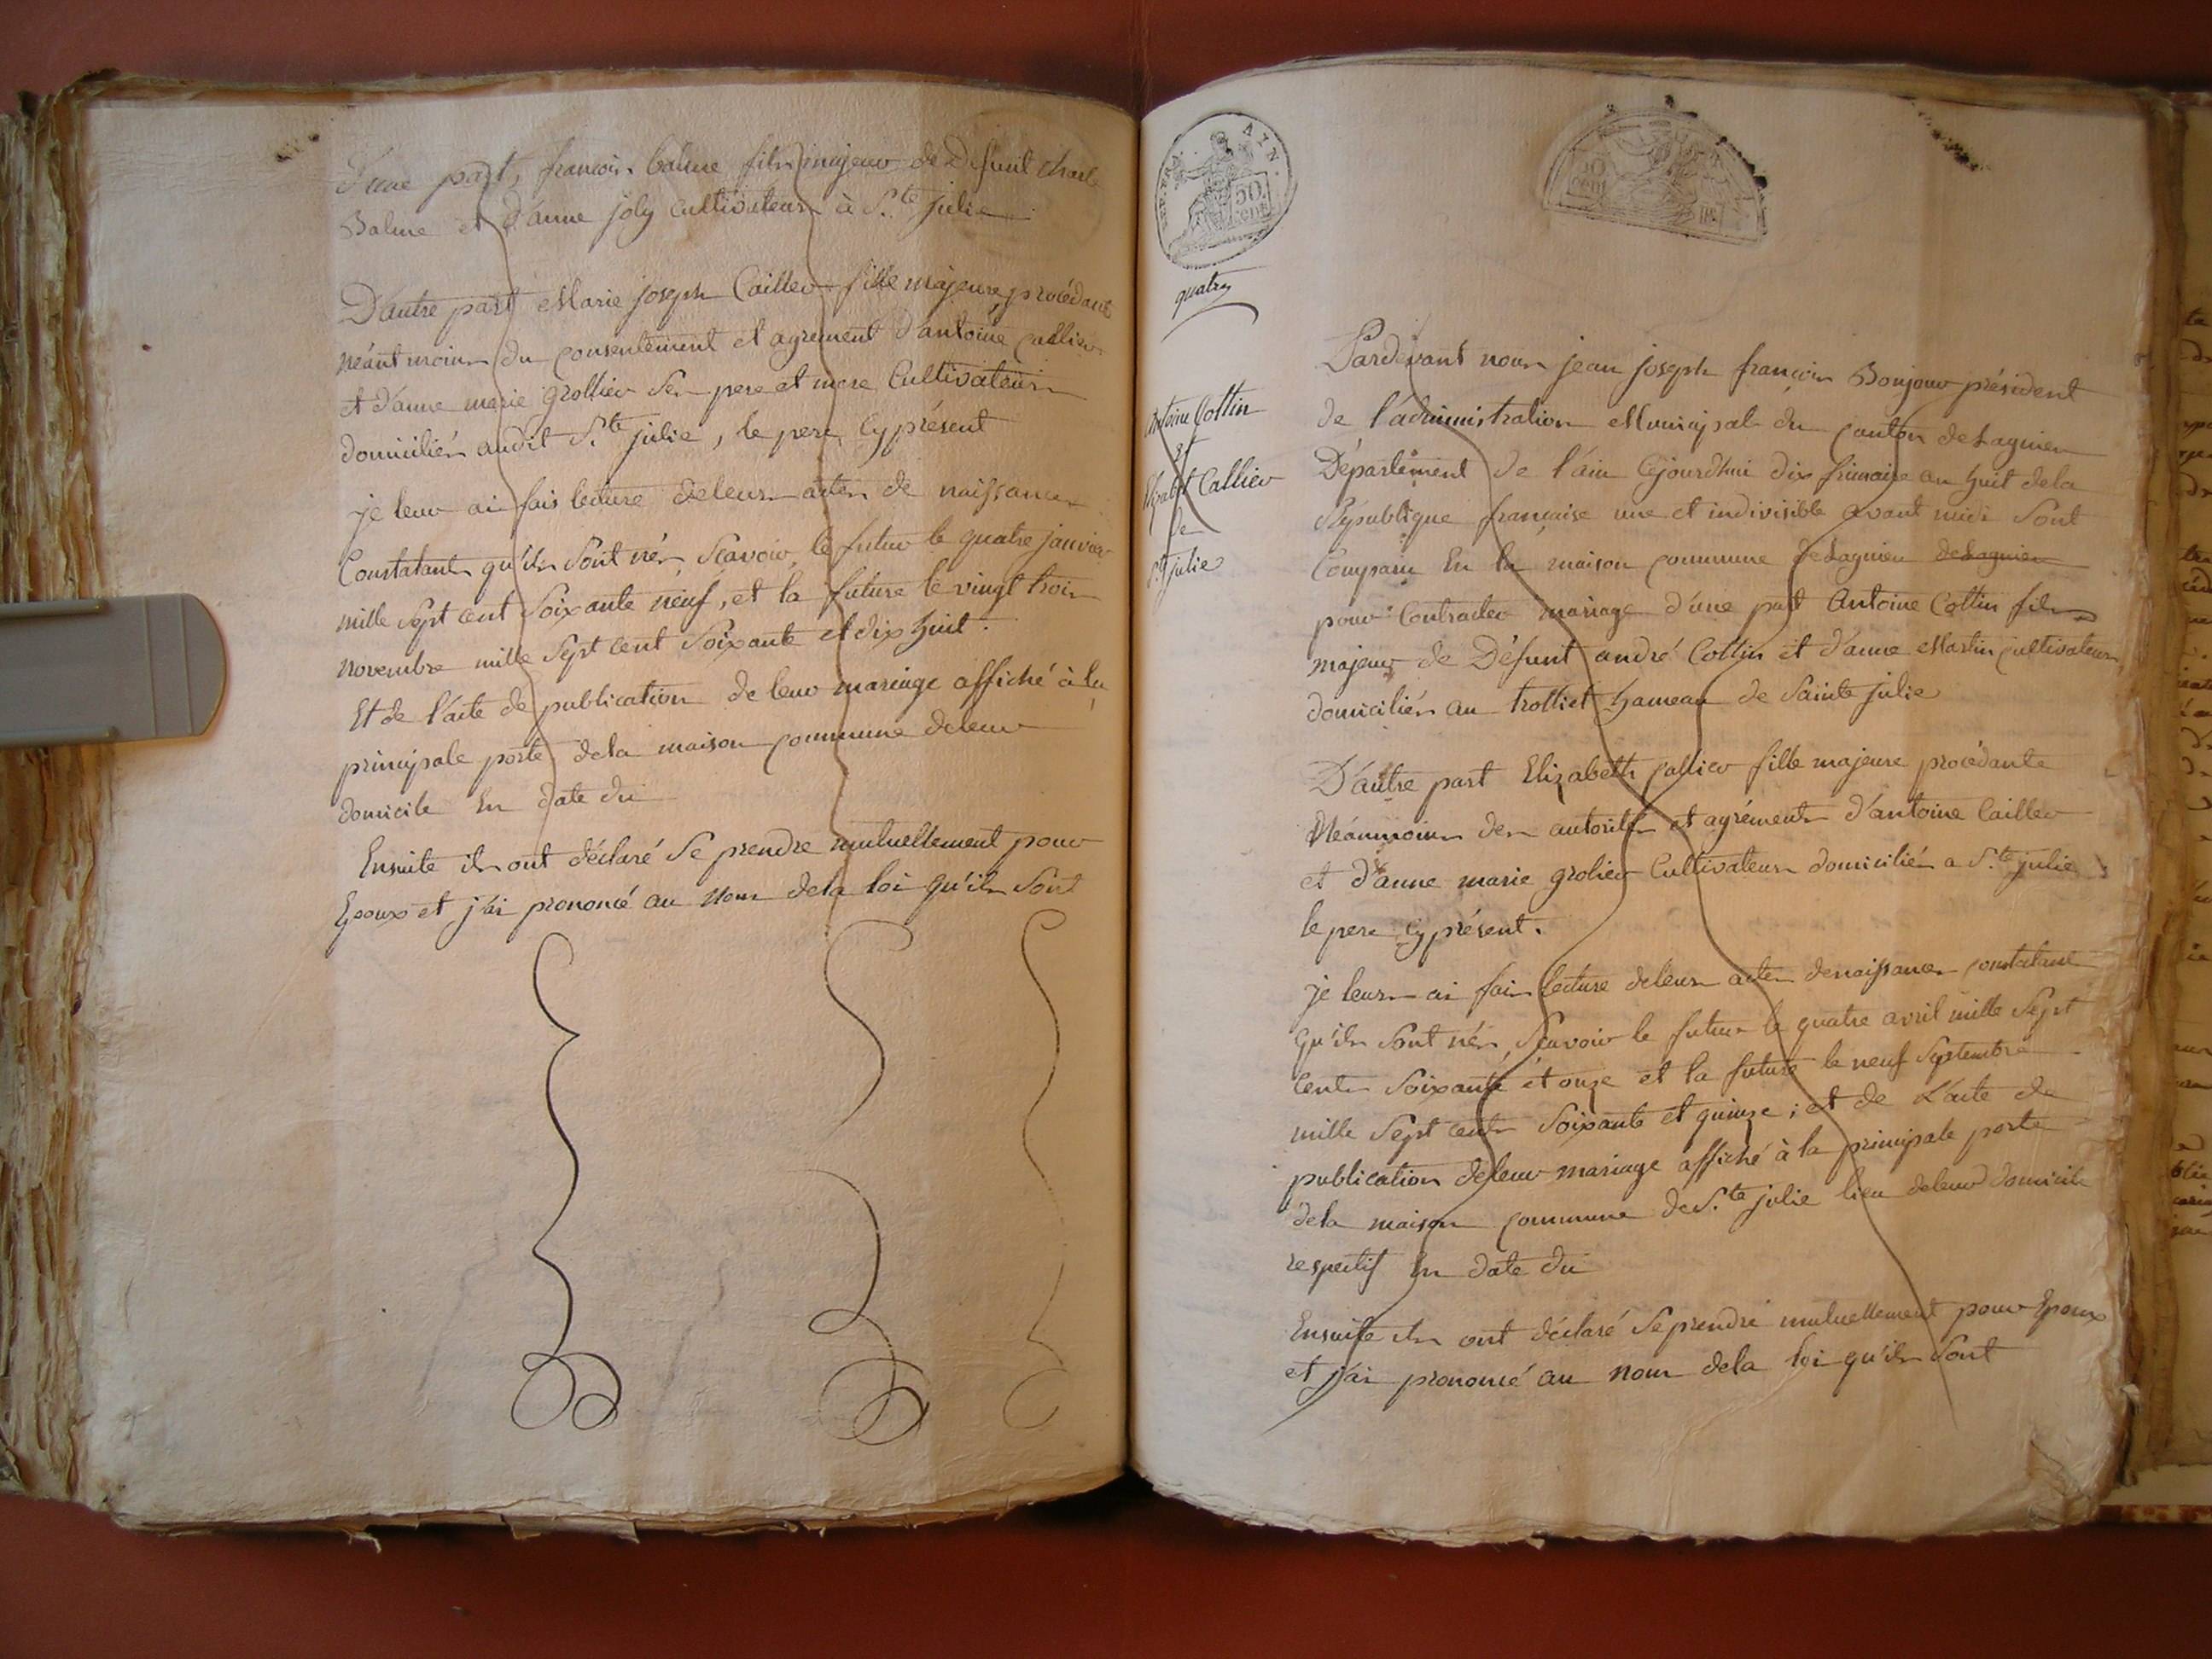 D'une part, francois Balme fils majeur de Défunt Charle
Balme et d'anne joly cultivateurs à S.te julie
D'autre part Marie joseph Cailler fille majeure, procédant
néantmoins du consentement et agrement d'antoine Callier
et d'anne marie Grollier ses pere et mere Cultivateurs
domiciliés audit S.te julie, le pere cy présent
je leur ai fais lecture de leurs actes de naissances
Constatants qu'ils Sont nés, Scavoir, le futur le quatre janvier
mille Sept cent Soixante neuf, et la future le vingt trois
novembre mille Sept cent Soixante et dix huit.
Et de l'acte de publication de leur mariage affiché à la
principale porte de la maison commune de leur
domicile En date du
Ensuite ils ont déclaré Se prendre mutuellement pour
Epoux et j'ai prononcé au Nom de la loi qu'ils Sont
AIN
50.
cent.
quatre
Antoine Cottin
et
Elizabet Callier
de
S.te julie
50
cent
Pardevant nous jean joseph françois Bonjour président
de l'administration Municipale du canton de Lagnieu
Département de l'ain Cejourdhui dix frimaire an huit de la
République française une et indivisible avant midi Sont
Comparu En la maison commune de Lagnieu de Lagnieu
pour Contracter mariage d'une part Antoine Cottin fils
majeur de Défunt andré Cottin et d'anne Martin cultivateurs
domiciliés au trolliet hameau de Sainte julie
D'autre part Elizabeth Callier fille majeure procédante
Néanmoins des autorités et agréments d'antoine Cailler
et d'anne marie grolier Cultivateurs domiciliés a S.te julie
le pere cy présent.
je leurs ai fais lecture de leurs actes de naissances constatant
qu'ils Sont nés, Scavoir le futur le quatre avril mille Sept
Cents Soixante et onze et la future le neuf Septembre
mille Sept cents Soixante et quinze ; et de L'acte de
publication de leur mariage affiché à la principale porte
de la maison commune de S.te julie lieu de leur domicile
respectif En date du
Ensuite ils ont déclaré Se prendre mutuellement pour Epoux
et j'ai prononcé au nom de la loi qu'ils Sont